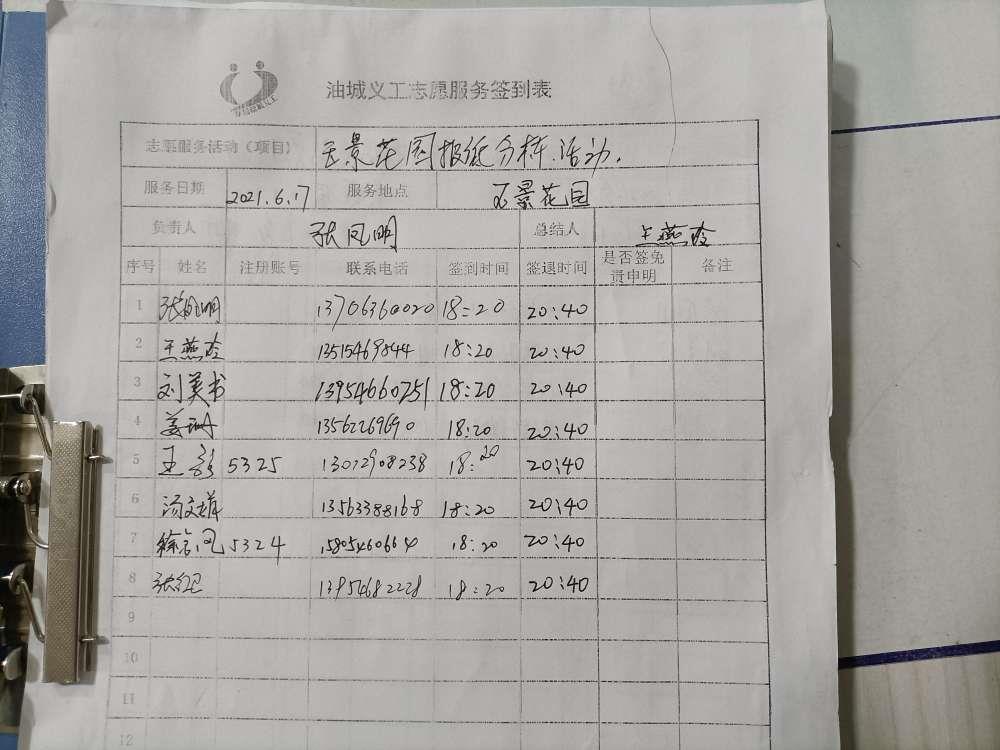 油城义工志愿服务签到表
志愿服务活动（项目） 景花园报纸分拣活动.
服务日期 2021.6.17 服务地点 景花园
负责人 张凤明 总结人 王燕玲
序号 姓名 注册账号 联系电话 签到时间 签退时间 是否签免责申明 备注
1 张凤明 13706360020 18:20 20:40
2 王燕玲 13515469844 18:20 20:40
3 刘英书 13954660251 18:20 20:40
4 姜 13562269690 18:20 20:40
5 王彩 5325 13072908238 18:20 20:40
6 汤文 13563388168 18:20 20:40
7 徐 凤 5324 15805460664 18:20 20:40
8 张红 13954682228 18:20 20:40
9
10
11
12